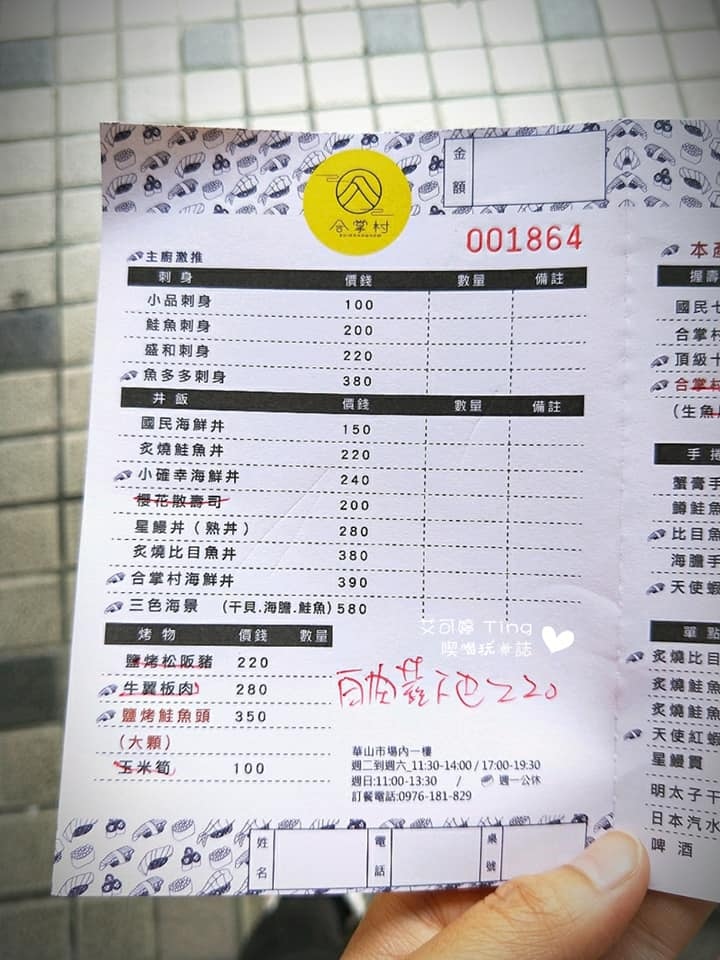 金額
合掌村
001864
主廚激推
刺身 價錢 數量 備註
小品刺身 100
鮭魚刺身 200
盛和刺身 220
魚多多刺身 380
丼飯 價錢 數量 備註
國民海鮮丼 150
炙燒鮭魚丼 220
小確幸海鮮丼 240
櫻花散壽司 200
星鰻丼（熟丼） 280
炙燒比目魚丼 380
合掌村海鮮丼 390
三色海景 (干貝.海膽.鮭魚) 580
烤物 價錢 數量
鹽烤松阪豬 220
牛翼板肉 280
鹽烤鮭魚頭 350
(大顆)
玉米筍 100
220
艾可婷 Ting
喫喝玩樂誌
華山市場內一樓
週二到週六_11:30-14:00 / 17:00-19:30
週日:11:00-13:30 / 週一公休
訂餐電話:0976-181-829
姓名
電話
桌號
本
握壽
國民
合掌
頂級
合掌村
(生魚
手捲
蟹膏手
鱒鮭魚
比目魚
海膽手
天使蝦
單點
炙燒比目
炙燒鮭魚
炙燒鮭魚
天使紅蝦
星鰻貫
明太子干
日本汽水
啤酒